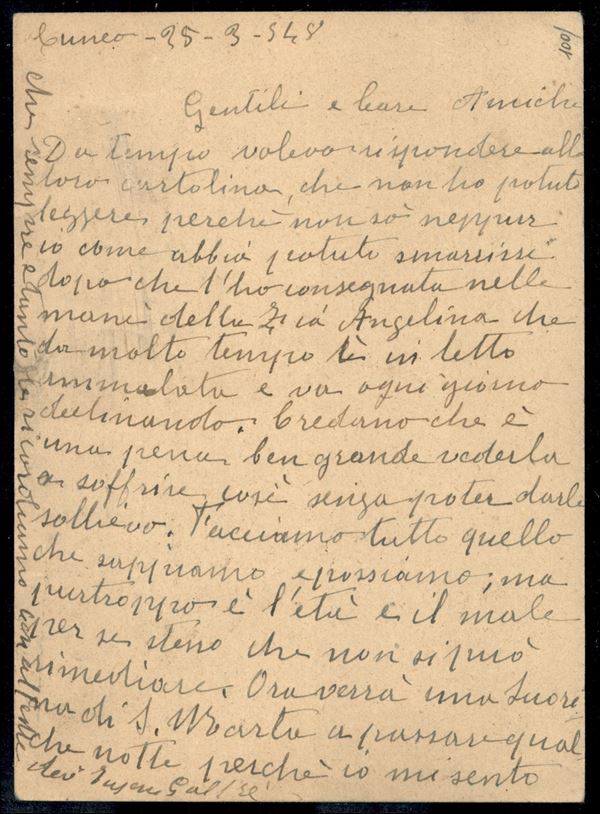 Cuneo - 25 - 3 - 948
1001
Gentili e Care Amiche
Da tempo volevo rispondere alla
loro cartolina, che non ho potuto
leggere perchè non sò neppur
io come abbia potuto smarrirsi
dopo che l'ho consegnata nelle
mani della Zia Angelina che
da molto tempo è in letto
ammalata e va ogni giorno
declinando. Credano che è
una pena ben grande vederla
a soffrire così senza poter darle
sollievo. Facciamo tutto quello
che sappiamo e possiamo; ma
purtroppo è l'età e il male
per se steso che non si può
rimediare. Ora verrà una Suori
na di S. Marta a passare qual
che notte perchè io mi sento
che sempre e tanto ricordiamo con affetto